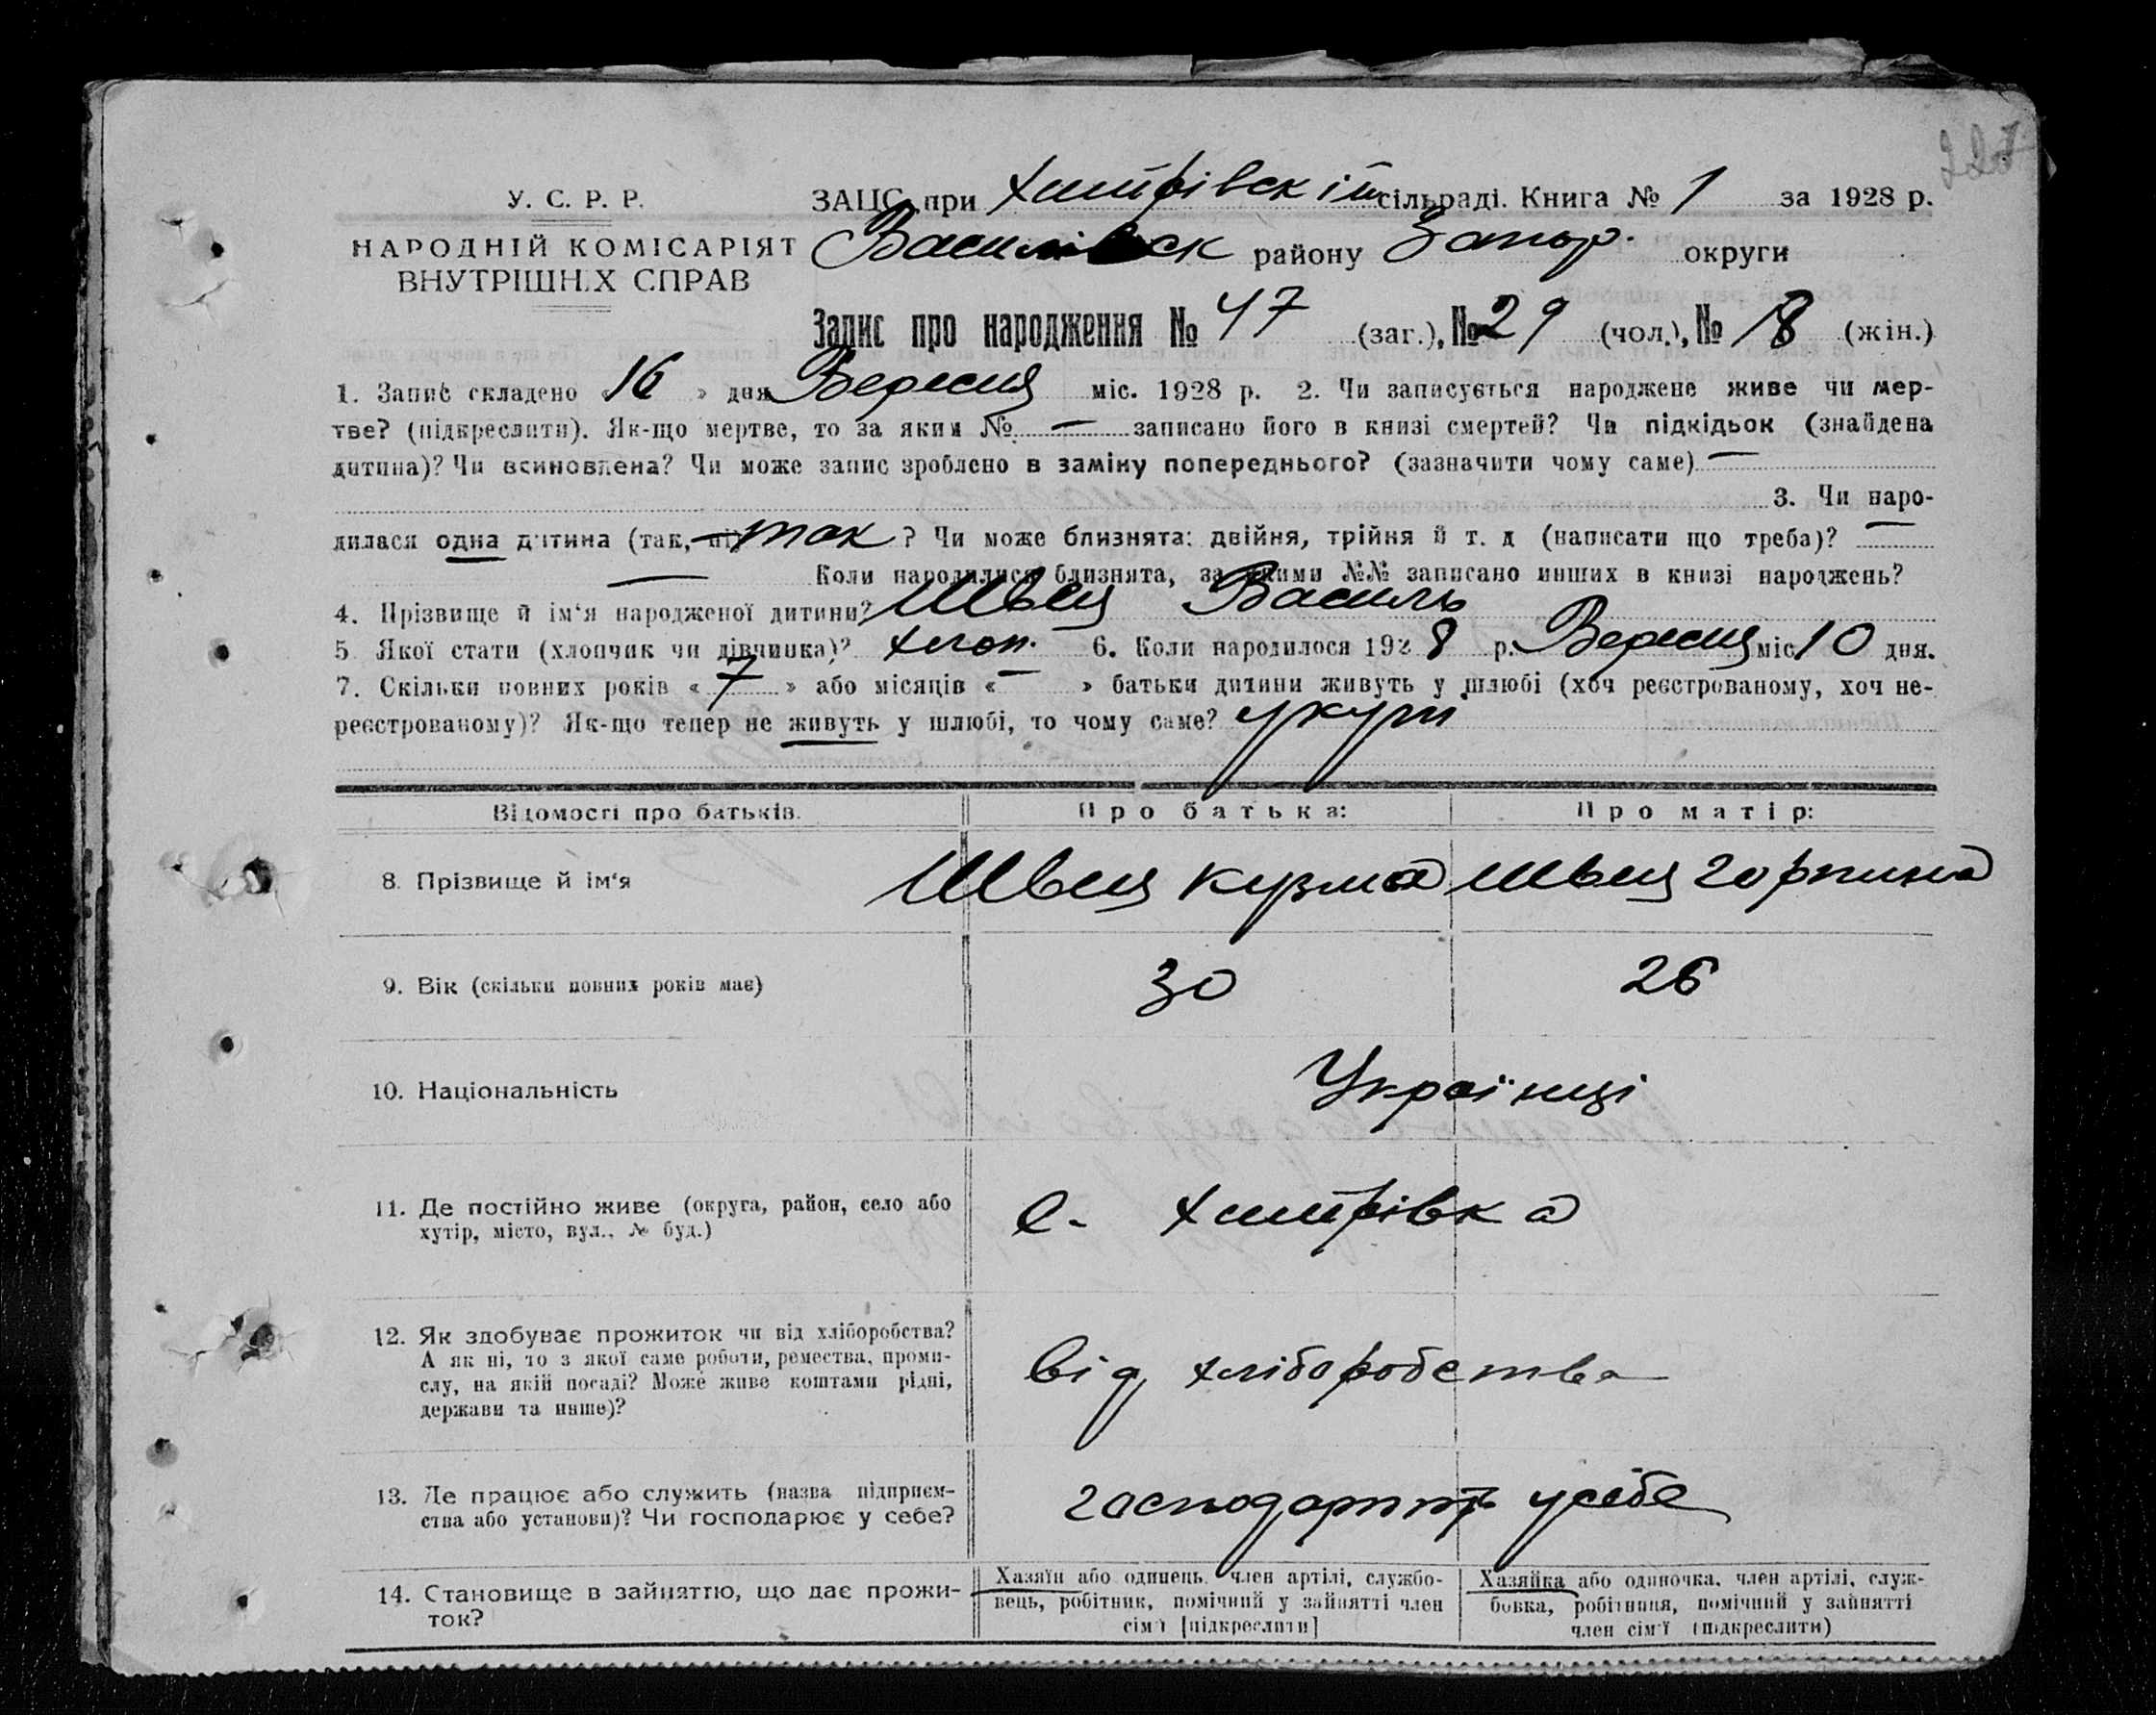 227
У. С. Р. Р.
НАРОДНІЙ КОМІСАРІЯТ
ВНУТРІШНІХ СПРАВ
ЗАЦС при Хитрівскій сільраді. Книга № 1 за 1928 р.
Василівск району Запор. округи
Запис про народження № 47 (заг.), № 29 (чол.), № 18 (жін.)
1. Запис складено 16 » дня Вересня міс. 1928 р. 2. Чи записується народжене живе чи мер-
тве? (підкреслити). Як-що мертве, то за яким № — записано його в книзі смертей? Чи підкідьок (знайдена
дитина)? Чи всиновлена? Чи може запис зроблено в заміну попереднього? (зазначити чому саме) —
3. Чи наро-
дилася одна дитина (так, ні) так ? Чи може близнята: двійня, трійня й т. д (написати що треба)? —
— Коли народилися близнята, за якими №№ записано инших в книзі народжень?
4. Прізвище й ім'я народженої дитини? Швец Василь
5 Якої стати (хлопчик чи дівчинка)? хлоп. 6. Коли народилося 1928 р. Вересня міс 10 дня.
7. Скільки повних років « 7 » або місяців « — » батьки дитини живуть у шлюбі (хоч реєстрованому, хоч не-
реєстрованому)? Як-що тепер не живуть у шлюбі, то чому саме? укупі
Відомості про батьків. Про батька: Про матір:
8. Прізвище й ім'я Швец Кузма Швец Горпина
9. Вік (скільки повних років має) 30 26
10. Національність Українці
11. Де постійно живе (округа, район, село або
хутір, місто, вул., № буд.) с. Хитрівка
12. Як здобуває прожиток чи від хліборобства?
А як ні, то з якої саме роботи, ремества, проми-
слу, на якій посаді? Може живе коштами рідні,
держави та инше)? від хліборобства
13. Де працює або служить (назва підприєм-
ства або установи)? Чи господарює у себе? господарють у себе
14. Становище в зайняттю, що дає прожи-
ток?
Хазяїн або одинець, член артілі, службо-
вець, робітник, помічний у зайнятті член
сім'ї [підкреслити]
Хазяйка або одиночка, член артілі, служ-
бовка, робітниця, помічний у зайнятті
член сім'ї (підкреслити)